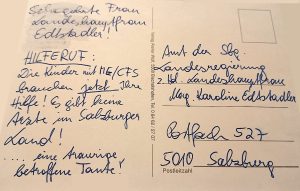 Sehr geehrte Frau
Landeshauptfrau
Edtstadler!
HILFERUF:
Die Kinder mit ME/CFS
brauchen jetzt Ihre
Hilfe! Es gibt keine
Ärzte im Salzburger
Land!
... eine traurige,
betroffene Tante!
Amt der Sbg.
Landesregierung
z. Hd. Landeshauptfrau
Mag. Karoline Edtstadler
Postfach 527
5010 Salzburg
Postleitzahl